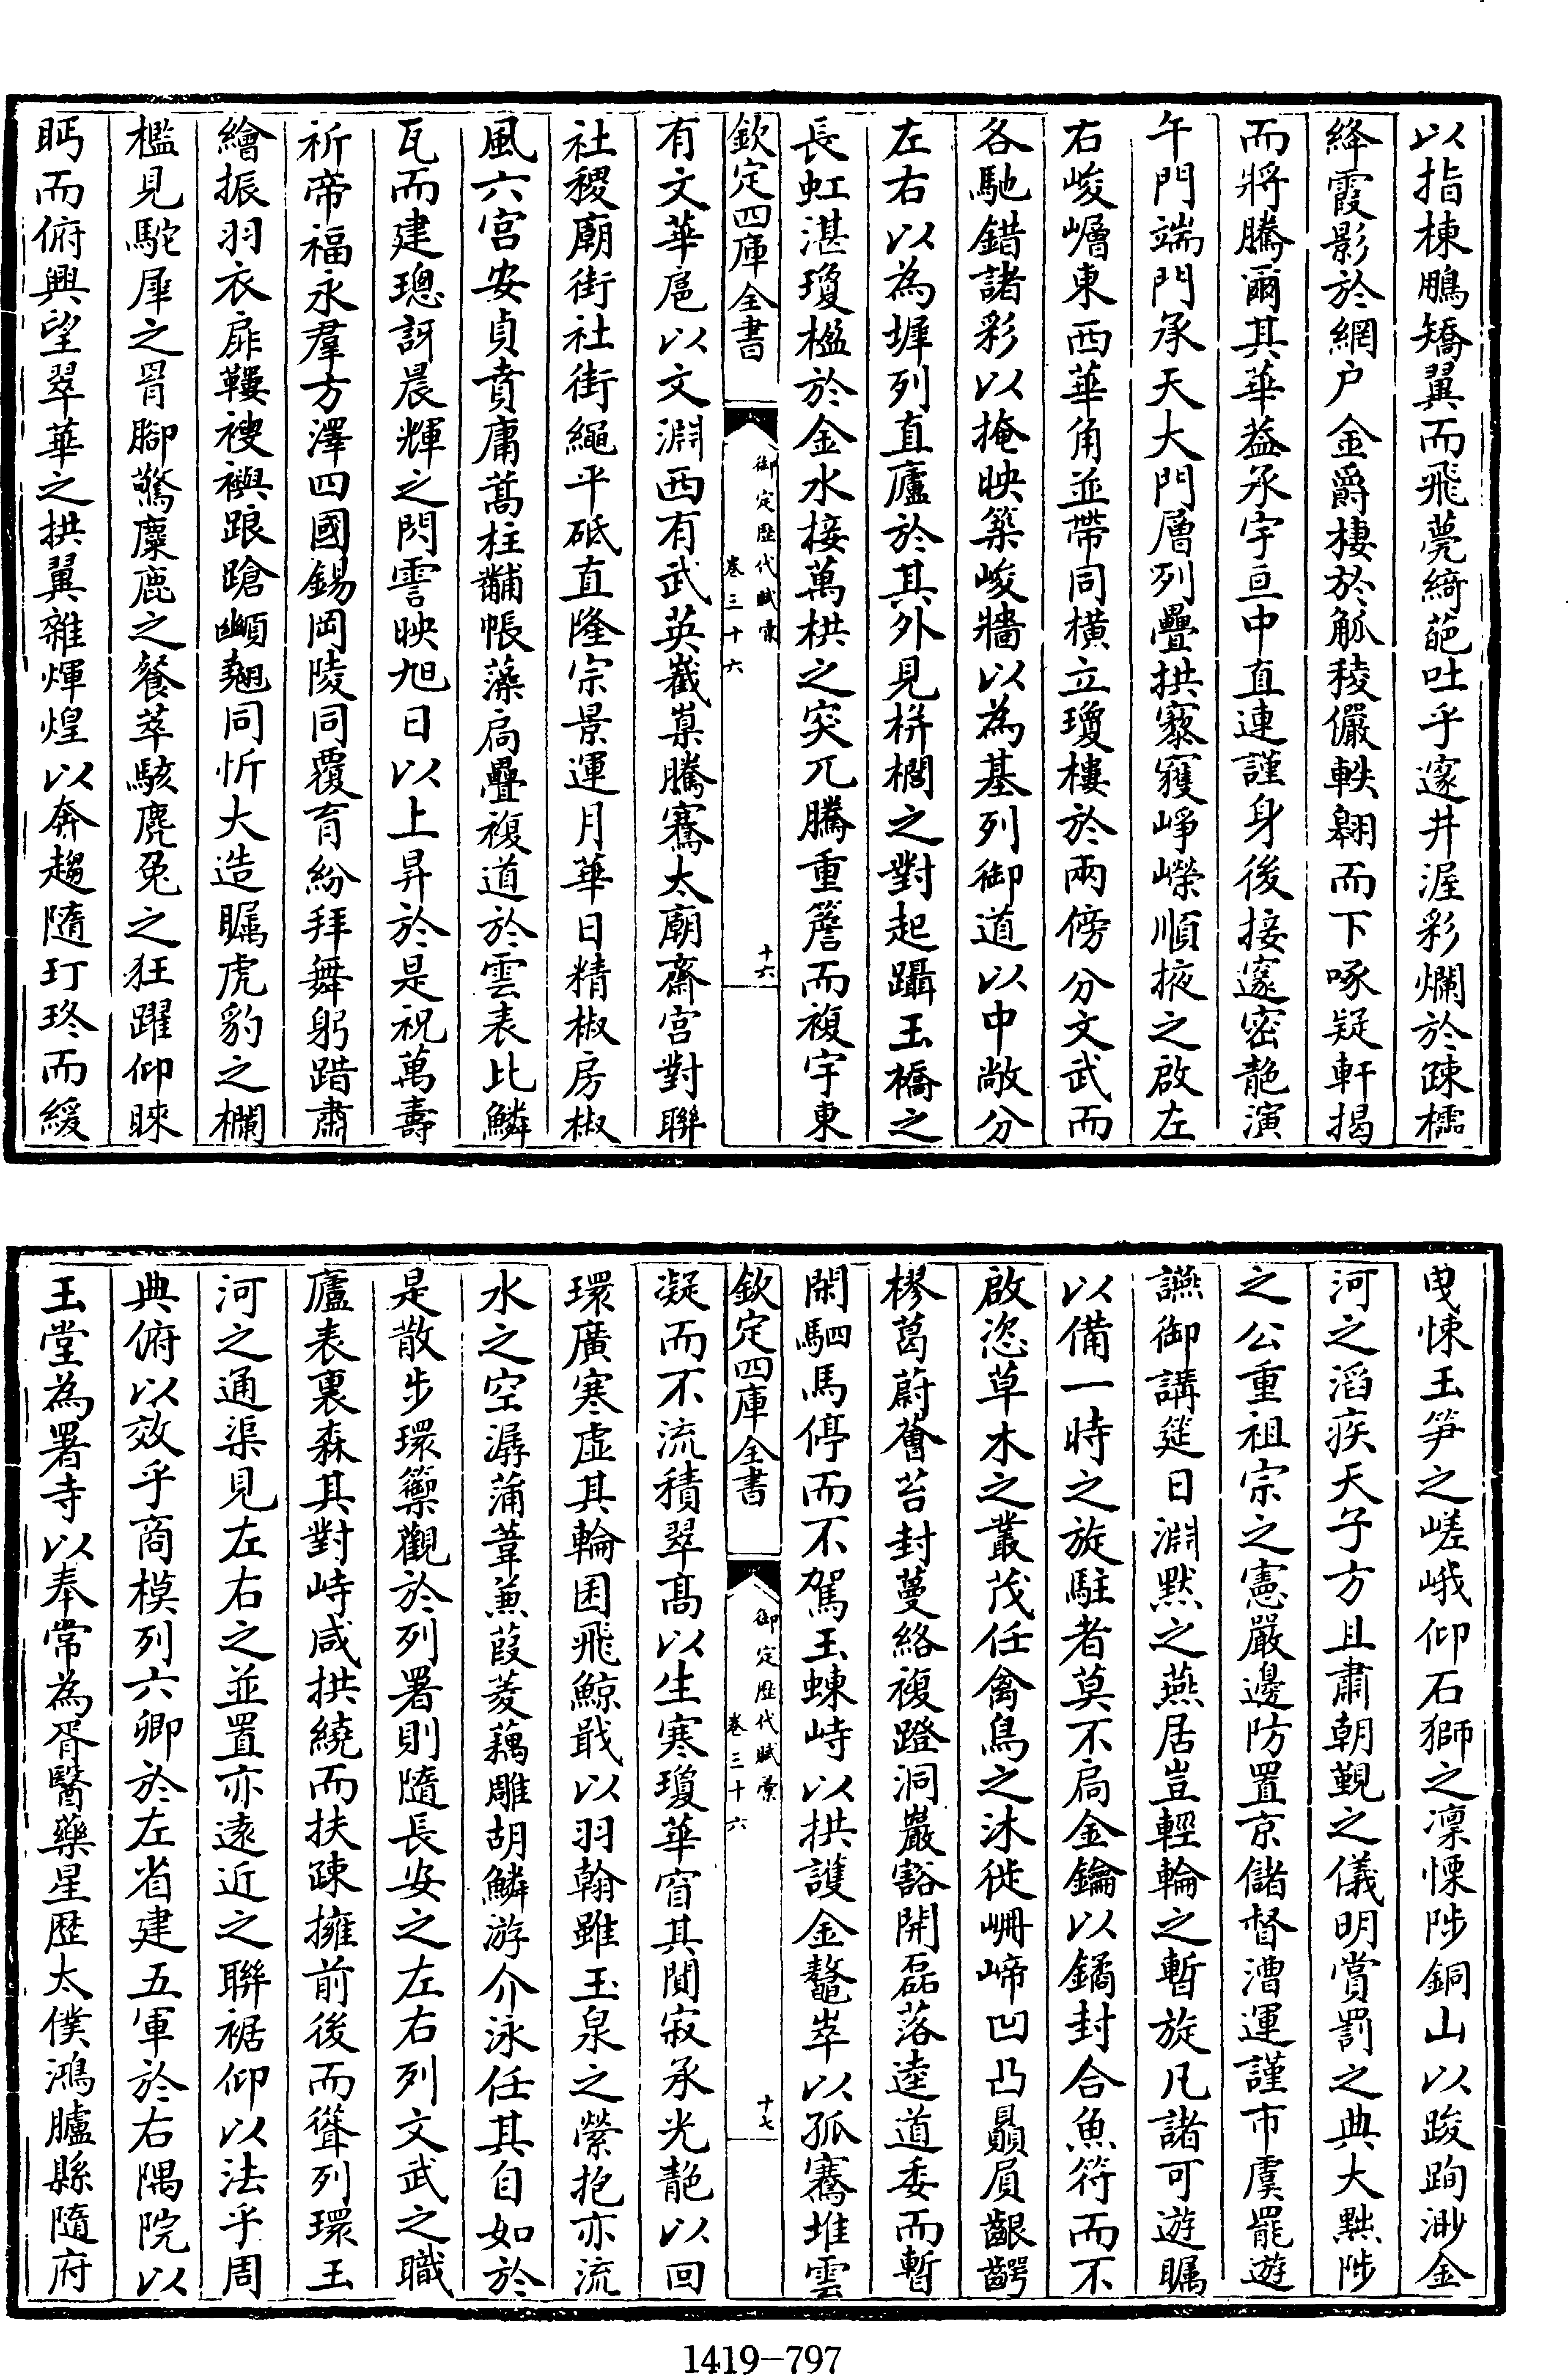 以指棟鵬矯翼而飛甍綺葩吐乎邃井渥彩爛於疎櫺
絳霞影於網户金爵棲於觚稜儼軼翱而下啄疑軒揭
而將騰爾其華葢承宇亘中直連謹身後接邃密靘演
午門端門承天大門層列疊拱寮窲崢嶸順掖之啟左
右峻㠝東西華角並帶同横立瓊樓於兩傍分文武而
各馳錯諸彩以掩映築峻牆以為基列御道以中敞分
左右以為墀列直廬於其外見栟櫚之對起躡玉橋之
長虹湛瓊楹於金水接萬栱之突兀騰重簷而複宇東
欽定四庫全書
御定歴代賦彙
卷三十六
十六
有文華扈以文淵西有武英嶻嶪騰騫太廟齋宫對聯
社稷廟街社街繩平砥直隆宗景運月華日精椒房椒
風六宫安貞賁庸蒿柱黼帳藻扃疊複道於雲表比鱗
瓦而建璁訝晨輝之閃霅映旭日以上昇於是祝萬壽
祈帝福永羣方澤四國錫岡陵同覆育紛拜舞躬踖肅
繪振羽衣扉鞻禮襖踉蹌㘭䫜同忻大造矚虎豹之欄
檻見駝犀之罥腳驚麋鹿之餐萃駭麂兔之狂躍仰睞
眄而俯興望翠華之拱翼雜煇煌以奔趨隨玎玲而緩
曳悚玉笋之嵯峨仰石獅之凛慄陟銅山以踆跔渺金
河之滔疾天子方且肅朝覲之儀明賞罰之典大黜陟
之公重祖宗之憲嚴邊防置京儲督漕運謹市虞罷遊
讌御講筵日淵默之燕居豈輕輪之暫旋凡諸可遊矚
以備一時之旋駐者莫不扃金鑰以鐍封合魚符而不
啟恣草木之叢茂任禽鳥之沐徙㟝崹凹凸贔屓齦齶
樛葛蔚薈苔封蔓絡複蹬洞巖豁開磊落逵道委而暫
閑駟馬停而不駕玉蝀峙以拱護金鼇崒以孤騫堆雲
欽定四庫全書
御定歴代賦彙
卷三十六
十七
凝而不流積翠高以生寒瓊華窅其閴寂承光靘以回
環廣寒虚其輪囷飛鯨戢以羽翰雖玉泉之縈抱亦流
水之空潺蒲葦蒹葭菱藕雕胡鱗游介泳任其自如於
是散步環籞觀於列署則隨長安之左右列文武之職
廬表裏森其對峙咸拱繞而扶疎擁前後而聳列環玉
河之通渠見左右之並置亦遠近之聯裾仰以法乎周
典俯以效乎商模列六卿於左省建五軍於右隅院以
玉堂為署寺以奉常為胥醫藥星歴太僕鴻臚縣隨府
1419—797